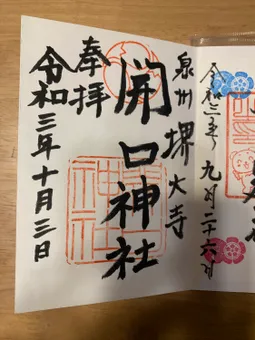 令和三年九月二十六日
泉州堺大寺
開口神社
奉拝
令和三年十月三日